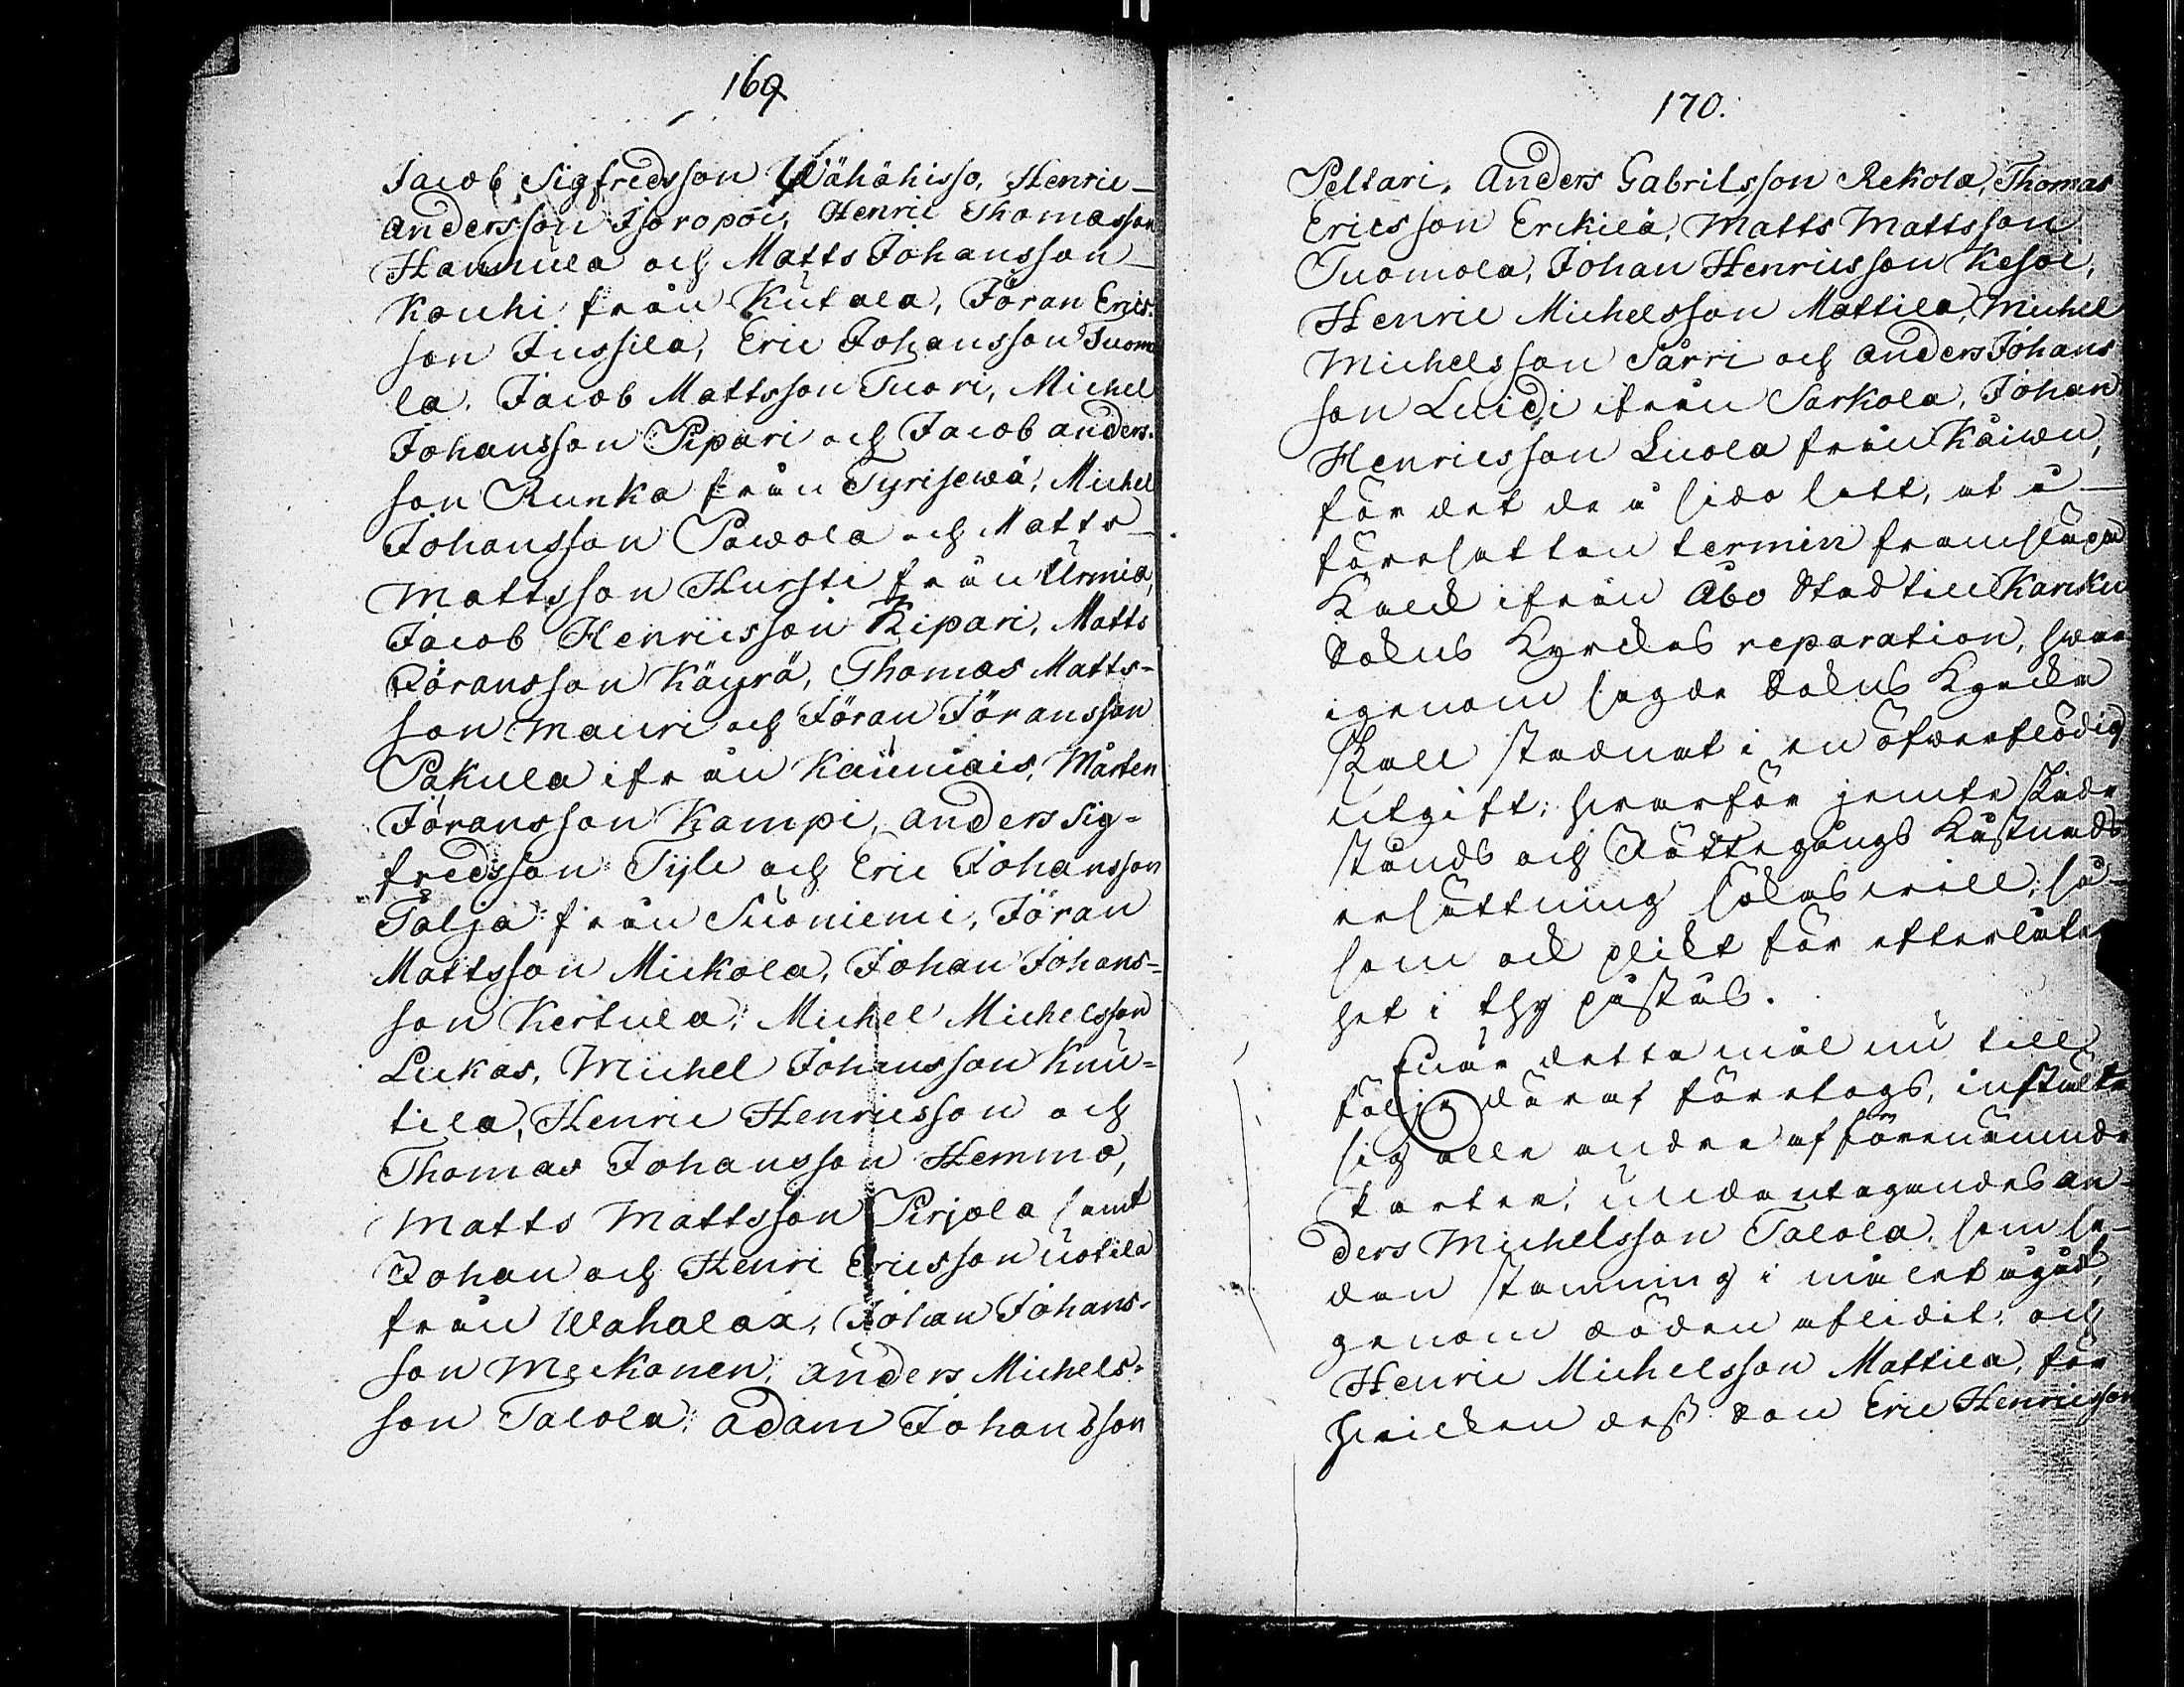 169
Jacob Sigfredsson Wähähisso, Henric
Andersson Isoropoi, Henric Thomasson
Hannula och Matts Johansson
Kouhi från Kutala, Jöran Erics-
son Jussila, Eric Johansson Tuomo
la, Jacob Mattsson Tuori, Michel
Johansson Pipari och Jacob Anders-
son Runka från Tyrisewä, Michel
Johansson Pawola och Matts
Mattsson Hursti från Urmia,
Jacob Henricsson Ripari, Matts
Jöransson Käyrä, Thomas Matts-
son Mauri och Jöran Jöransson
Pakula ifrån Kauniais, Mårten
Jöransson Kampi, Anders Sig-
fredsson Tyle och Eric Johansson
Talja från Suoniemi, Jöran
Mattsson Mickola, Johan Johans-
son Kertula, Michel Michelsson
Lukas, Michel Johansson Knu-
tila, Henric Henricsson och
Thomas Johansson Hemmo,
Matts Mattsson Pirjola samt
Johan och Henri Ericsson Uotila
från Wahalax, Johan Johans-
son Meskanen, Anders Michels-
son Talola, Adam Johansson
170.
Peltari, Anders Gabrilsson Rekola, Thomas
Ericsson Erckilä, Matts Mattsson
Tuomola, Johan Henricsson Kesoi,
Henric Michelsson Mattila, Michel
Michelsson Särri och Anders Johans
son Luidi ifrån Sarkola, Johan
Henricsson Luola från Kåiwu,
för det de å sido satt, at å
föresatten termin framskapa
Kalck ifrån Åbo Stad till Karcku
Sokns Kyrckas reparation, hwar
igenom sagde Sokns Kyrcka
skall stadnat i en öfwerflödig
utgift; hwarföre jemte skade
stånds och Rättegångs kåstnads
ersättning sökas will, så-
som ock plickt för efterlåten
het i thy påståls.
Enär detta mål nu till
följe däraf företogs, instälte
sig alla andra af förenämnde
som
Parter, undantagandes An-
ders Michelsson Talola, som se-
dan stämning i målet ågådt,
genom döden aflidit; och
Henric Michelsson Mattila, för
hwicken dess Son Eric Henricsson